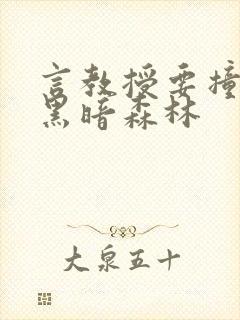 言教授要撞
黑暗森林
大泉五十